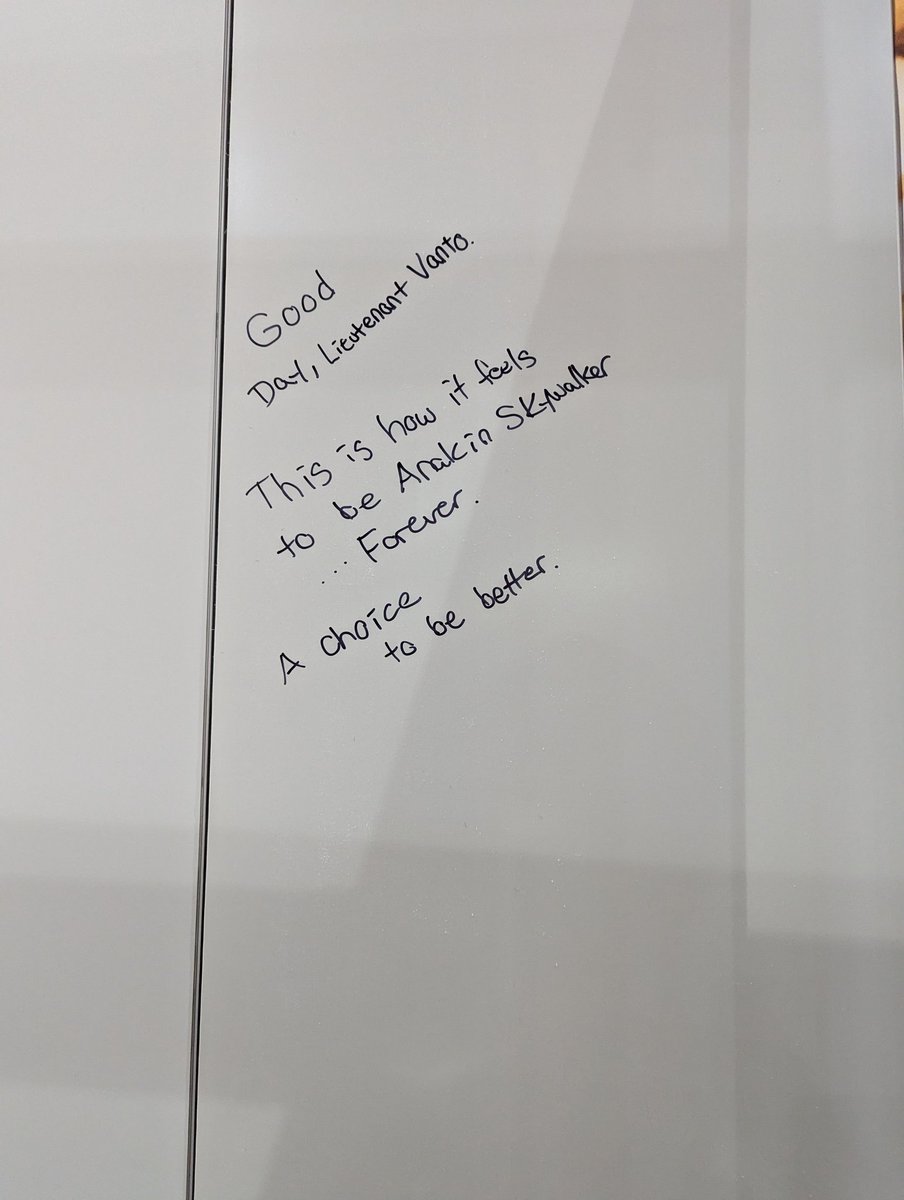 Good
Day, Lieutenant Vanto.
This is how it feels
to be Anakin Skywalker
... Forever.
A choice
to be better.